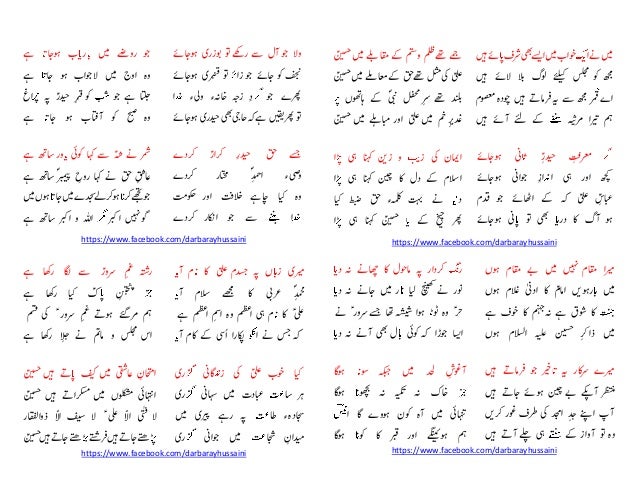 میں نے ایک خواب میں ایسے بھی شرف پائے ہیں
مجھ کو مجلس کیلئے لوگ بلا لائے ہیں
اے قمر مجھ سے یہ فرماتے ہیں چودہ معصوم
ہم تیرا مرثیہ سننے کے لئے آئے ہیں
جمے تھے ظلم و ستم کے مقابلے میں حسین
علی کی مثل تھے حق کے معاملے میں حسین
بلند تھے سر محفل نبی کے ہاتھوں پر
غدیر خم میں علی اور مباہلے میں حسین
ولا جو آل سے رکھے تو بوذری ہوجائے
نجف کو جائے جو زائر تو قنبری ہوجائے
پھرے جو گرد زچہ خانہء ولیء خدا
تو پھر یقیں ہے کہ حاجی بھی حیدری ہوجائے
جو روضے میں باریاب ہوجاتا ہے
وہ اوج میں لاجواب ہو جاتا ہے
جلتا ہے جو شب کو قبر حیدر پہ چراغ
وہ صبح کو آفتاب ہو جاتا ہے
گر معرفت حیدر ثانی ہوجائے
کچھ اور ہی انداز جوانی ہوجائے
عباس علی کے اٹھائے جو قدم
ہو آگ کا دریا بھی تو پانی ہوجائے
ایمان کی زیب و زین کہنا ہی پڑا
اسلام کے دل کا چین کہنا ہی پڑا
دنیا نے بہت کلمہء حق ضبط کیا
پھر چیخ کے یا حسین کہنا ہی پڑا
جسے حق حیدر کرار کردے
وصیء احمد مختار کردے
وہ کیا چاہے خلافت اور حکومت
خدا بننے سے جو انکار کردے
شمر نے شہ سے کہا کوئی یاور ساتھ ہے
عاشق حق نے کہا روح پیمبر ساتھ ہے
گو نہیں اکبر مگر اللہ و اکبر ساتھ ہے
https://www.facebook.com/darbarayhussaini
https://www.facebook.com/darbarayhussaini
میرا مقام نہیں میں بے مقام ہوں
میں بارہویں امام کا ادنی غلام ہوں
جنت کا شوق ہے نہ جہنم کا خوف ہے
میں ذاکر حسین علیہ السلام ہوں
رنگ کردار پہ ماحول کا چھانے نہ دیا
نور نے کھینچ لیا نار میں جانے نہ دیا
حر وہ ٹوٹا ہوا شیشہ تھا جسے سرور نے
ایسا جوڑا کہ کوئی بال بھی آنے نہ دیا
میری زباں پہ جسدم علی کا نام آیا
محمد عربی کا مجھے سلام آیا
علی کا نام ہی اعظم ہے وہ اسم اعظم ہے
کہ جس نے انکو پکارا اسی کے کام آیا
رشتہ غم سرور سے لگا رکھا ہے
جز پنجتن پاک کیا رکھا ہے
ہم مرگئے ہوتے غم سرور کی قسم
اس مجلس و ماتم نے جلا رکھا ہے
میرے سرکار یہ تاخیر جو فرماتے ہیں
منتظر آپکے بے چین ہوئے جاتے ہیں
آپ اپنے جد امجد کی طرف غور کریں
وہ تو آواز کے سنتے ہی چلے آتے ہیں
آغوش لحد میں جبکہ سونا ہوگا
جز خاک نہ تکیہ نہ بچھونا ہوگا
تنہائی میں آہ کون ہووے گا انیس
ہم ہوئینگے اور قبر کا کونا ہوگا
کیا خوب علی کی زندگانی گزری
ہر ساعت عبادت میں سہانی گزری
سجادہء طاعت پہ رہے پیری میں
میدان شجاعت میں جوانی گزری
امتحان عاشقی میں کیف پاتے ہیں حسین
انتہائی مشکلوں میں مسکراتے ہیں حسین
لا فتی الا علی لا سیف الا ذوالفقار
پڑھتے جاتے ہیں فرشتے بڑھتے جاتے ہیں حسین
https://www.facebook.com/darbarayhussaini
https://www.facebook.com/darbarayhussaini